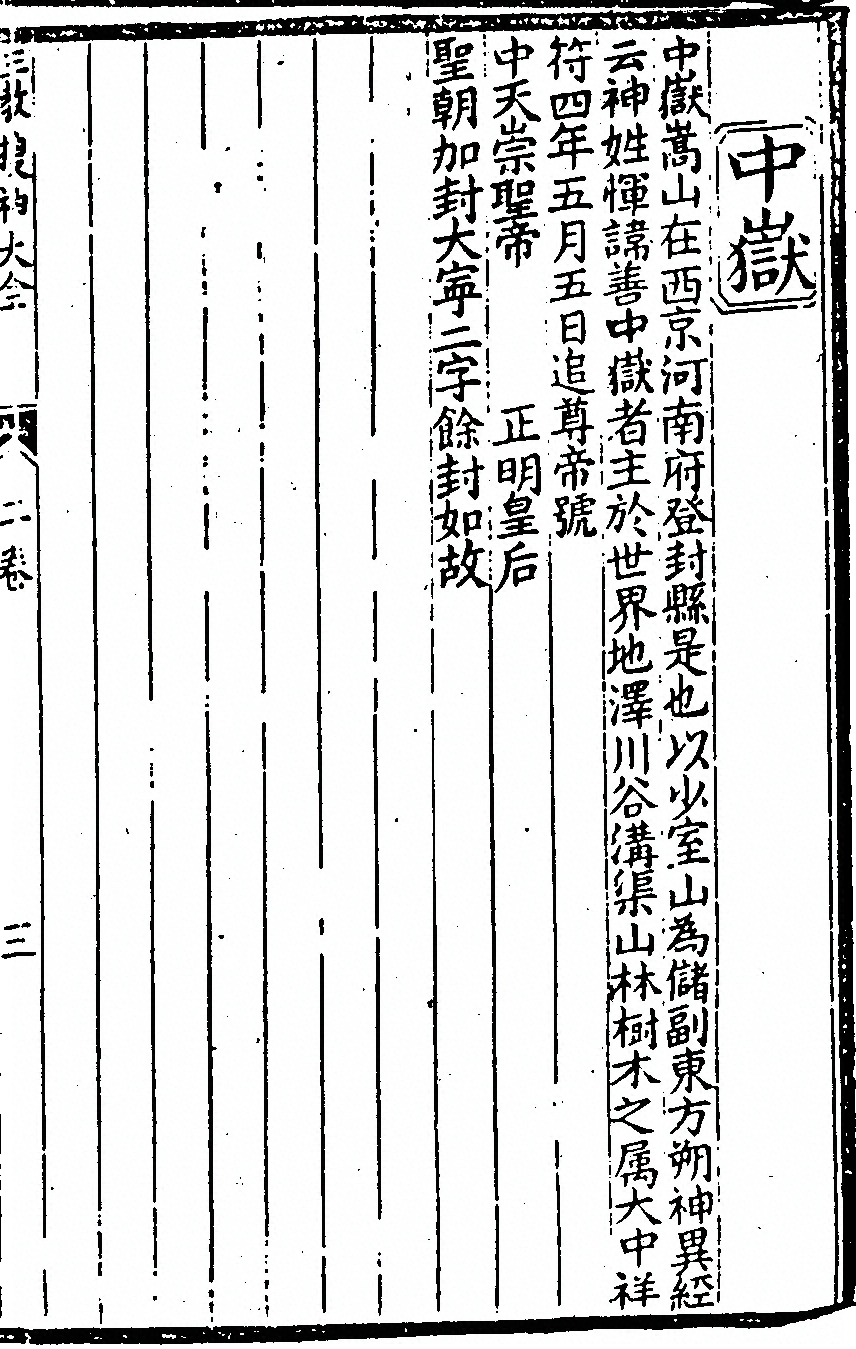 中嶽
中嶽嵩山在西京河南府登封縣是也以少室山為儲副東方朔神異經
云神姓惲諱善中嶽者主於世界地澤川谷溝渠山林樹木之属大中祥
符四年五月五日追尊帝號
中天崇聖帝　正明皇后
聖朝加封大寧二字餘封如故
三教搜神大全　二卷　三